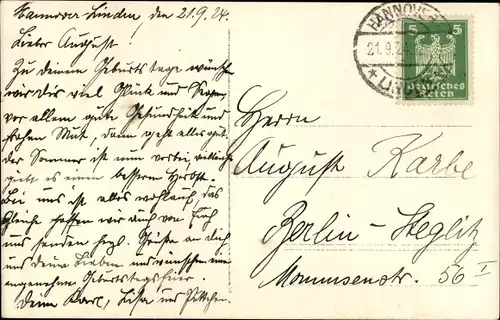 Hannover-Linden, den 21.9.24.
Lieber August!
Zu deinem Geburtstage wünschen
wir dir viel Glück und Segen
vor allem gute Gesundheit und
frohen Mut, dann geht alles gut.
der Sommer ist nun vorbei, vielleicht
giebt es einen bessern Herbst.
Bei uns ist alles wohlauf, das
Gleiche hoffen wir auch von Euch
und senden herzl. Grüße an dich
und deine Lieben und wünschen eine
angenehme Geburtstagsfeier.
Deine Karl, Lisa und
HANNOVER
21.9.24
LINDEN
5 5
Deutsches
Reich
Herrn
August Karbe
Berlin-Steglitz
Mommsenstr. 56 I